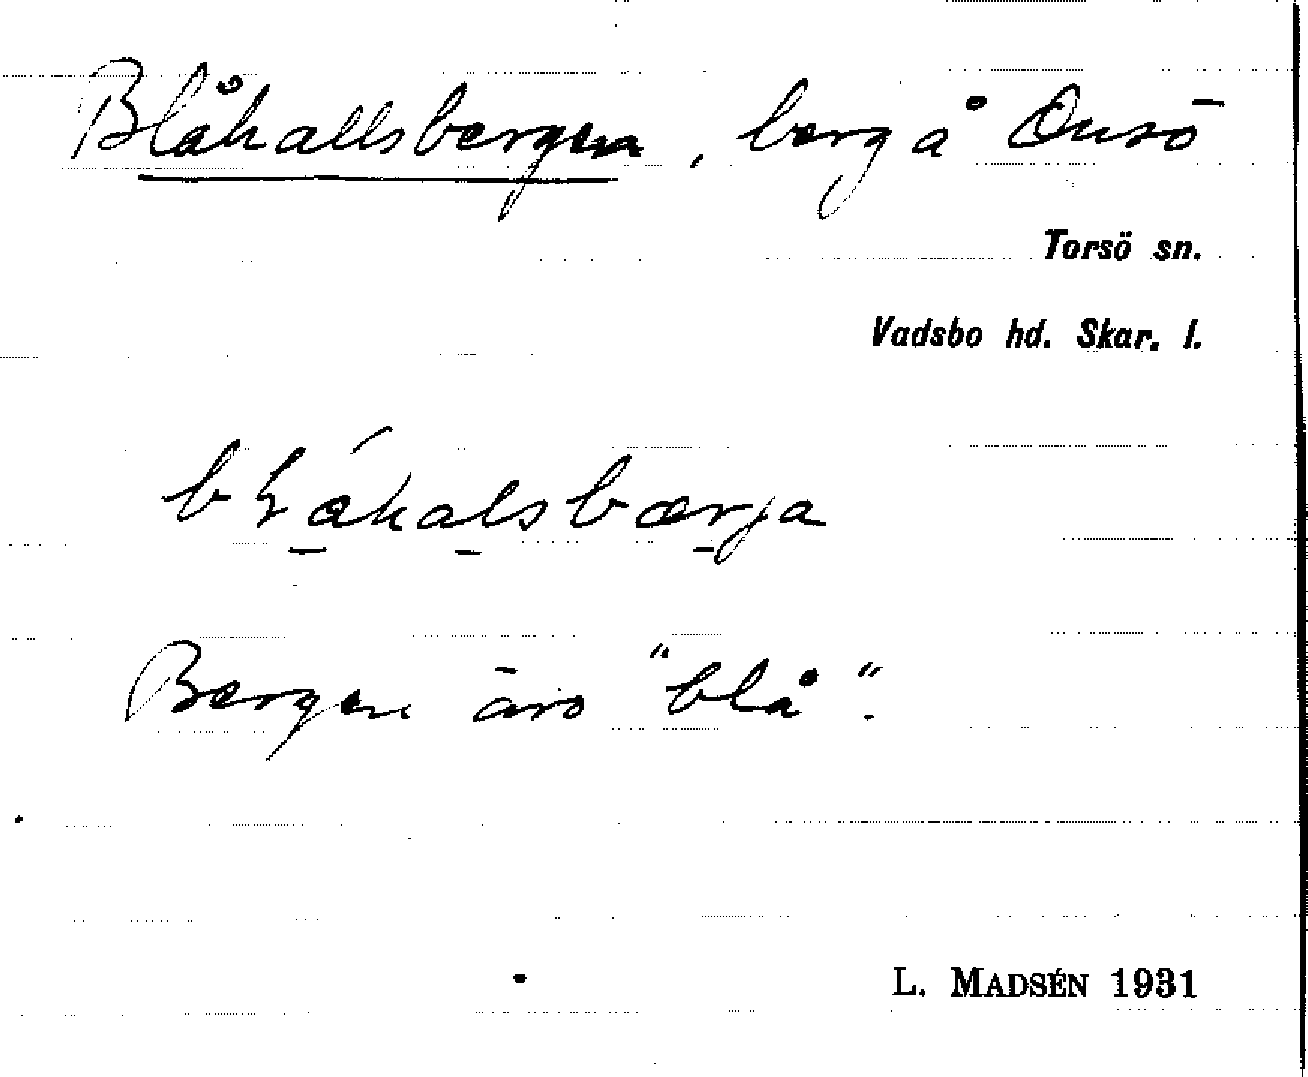 Blåhallsbergen, berg å Onsö
Torsö sn.
Vadsbo hd. Skar. l.
bɫáhalsbærja
Bergen äro "blå".
L. MADSÉN 1931